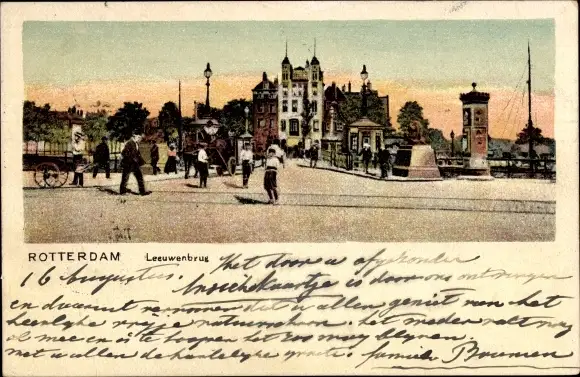 ROTTERDAM Leeuwenbrug
16 Augustus. Het door u afgezonden
Ansichtkaartje is door ons ontvangen
en daaruit vernomen dat u allen geniet van het
heerlijke vrije natuurschoon. het weder valt nog
al mee en is te hopen het zoo mag blijven.
met u allen de hartelijke groete. familie Bouman